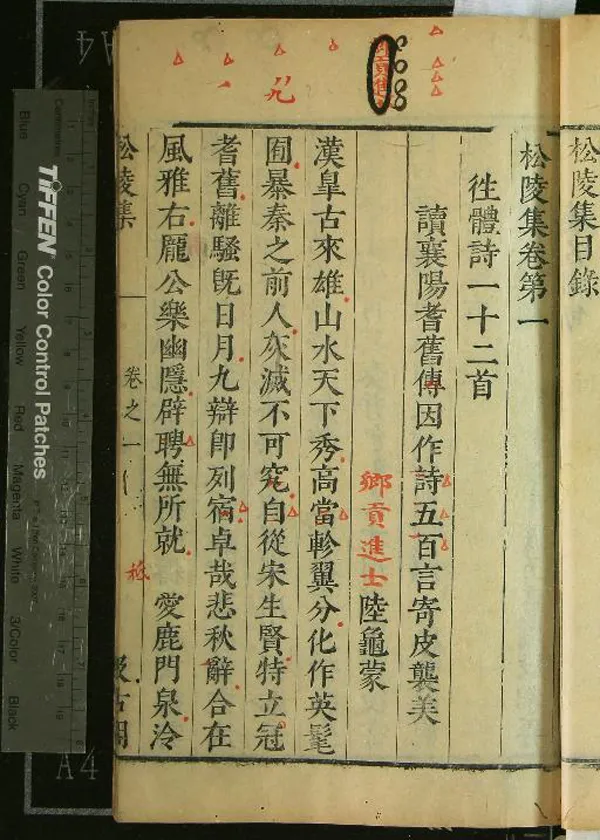 松陵集目錄
松陵集卷第一
徃體詩一十二首
讀襄陽耆舊傳因作詩五百言寄皮襲美
鄉貢進士陸龜蒙
漢臯古來雄山水天下秀高當軫翼分化作英髦
囿暴秦之前人灰滅不可究自從宋生賢特立冠
耆舊離騷旣日月九辯卽列宿卓哉悲秋辭合在
風雅右龎公樂幽隱辟聘無所就 愛鹿門泉泠
松陵集
卷之一
汲古閣
TIFFEN Color Control Patches
Blue
Cyan
Green
Yellow
Red
Magenta
White
3/Color
Black
Centimetres
Inches
A4
A4